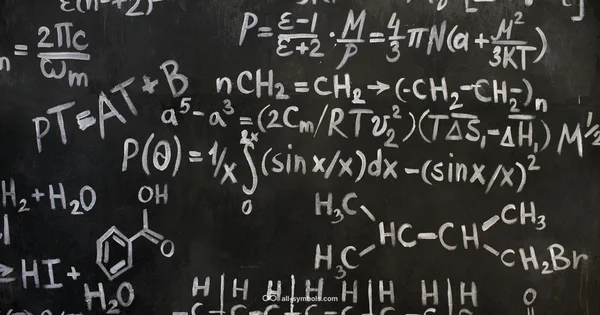 P = ε-1/ε+2 · M/ρ = 4/3 πN(a + M²/3KT)
n = 2Πc/ωm
PT = AT + B
nCH2 = CH2 → (-CH2-CH2-)n
a⁵-a³ = (2Cm/RTv₂²)(TΔS₁-ΔH₁) M½
P(θ) = 1/x ∫ 0 2x (sin x/x)dx - (sinx/x)²
H2 + H2O
OH
O
H3C
CH3
HC-CH
H3C
CH2Br
HI +
H2O
H H H H H H
all-symbols.com
O